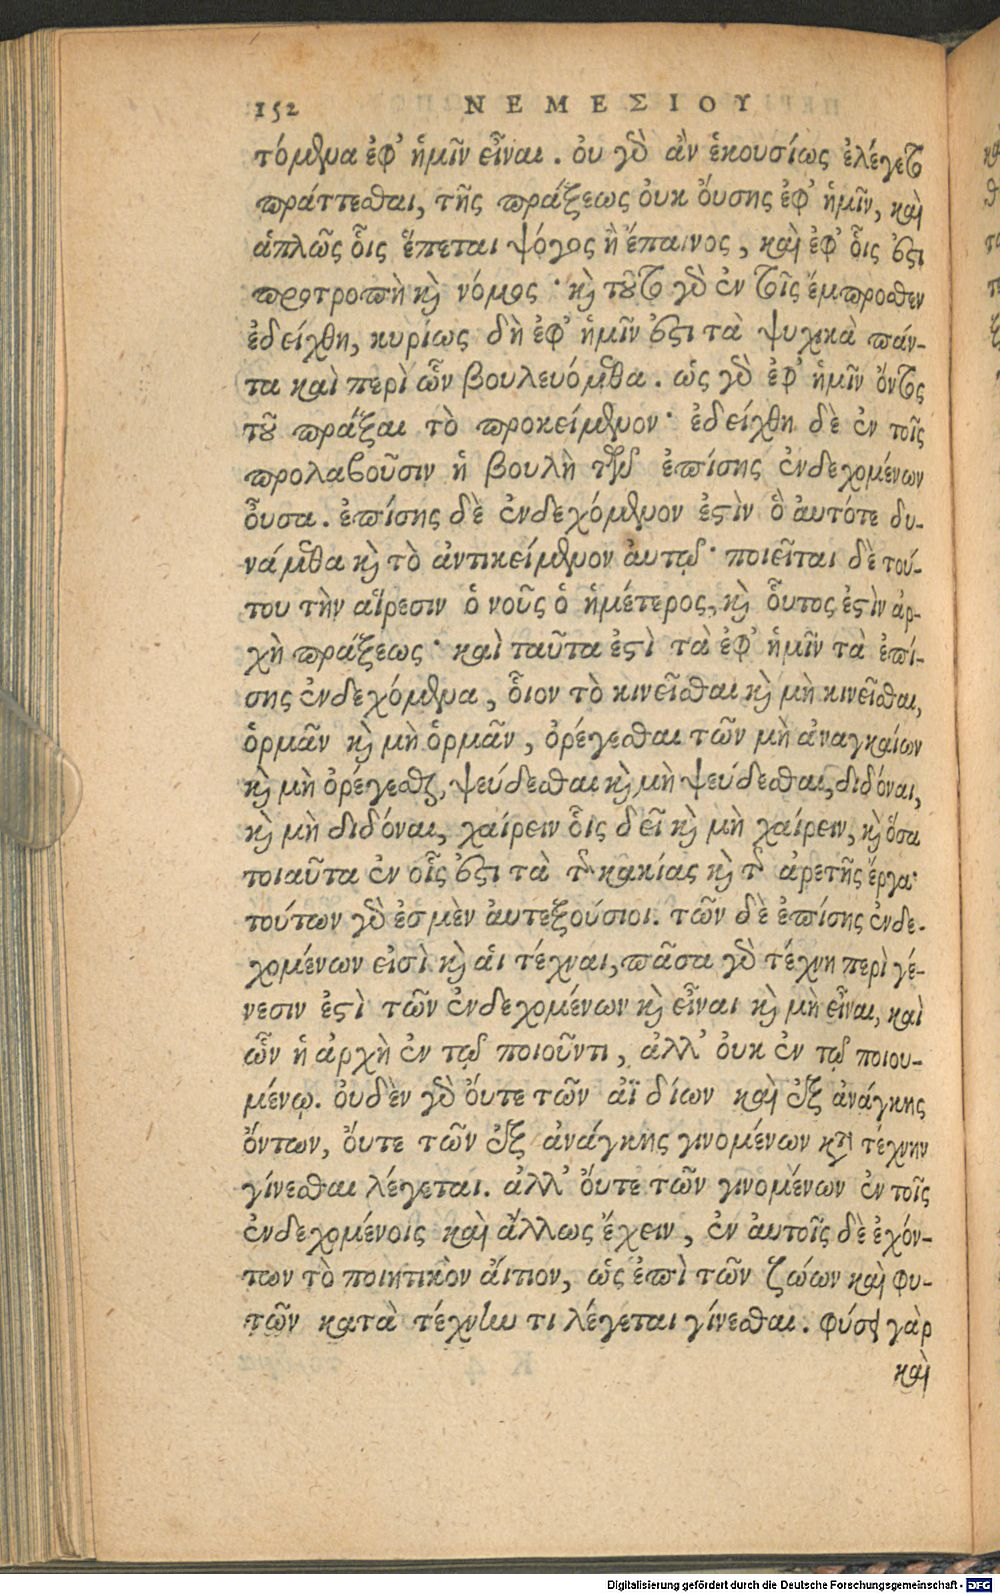 152 ΝΕΜΕΣΙΟΥ
τόμενα ἐφ' ἡμῖν εἶναι. οὐ γὸ ἂν ἑκουσίως ἐλέγετο
πράττεσθαι, τῆς πράξεως ὀυκ ὄυσης ἐφ' ἡμῖν, καὶ
ἁπλῶς ὅις ἕπεται ψόγος ἢ ἔπαινος, καὶ ἐφ' ὅις ἐστι
προτροπὴ κὶ νόμος· κὶ τοῦτο γὸ ἐν τοῖς ἔμπροσθεν
ἐδείχθη, κυρίως δὴ ἐφ' ἡμῖν ἐστι τὰ ψυχικὰ πάν-
τα καὶ περὶ ὧν βουλευόμεθα. ὡς γὸ ἐφ' ἡμῖν ὄντος
τοῦ πράξαι τὸ προκείμενον· ἐδείχθη δὲ ἐν τοῖς
προλαβοῦσιν ἡ βουλὴ τῶν ἐπίσης ἐνδεχομένων
ὖσα. ἐπίσης δὲ ἐνδεχόμενον ἐστὶν ὃ ἀυτότε δυ-
νάμεθα κὶ τὸ ἀντικείμενον ἀυτῷ· ποιεῖται δὲ τού-
του τὴν αἵρεσιν ὁ νοῦς ὁ ἡμέτερος, κὶ ὗτος ἐστὶν ἀρ-
χὴ πράξεως· καὶ ταῦτα ἐστὶ τὰ ἐφ' ἡμῖν τὰ ἐπί-
σης ἐνδεχόμενα, ὅιον τὸ κινεῖσθαι κὶ μὴ κινεῖσθαι,
ὁρμᾶν κὶ μὴ ὁρμᾶν, ὀρέγεσθαι τῶν μὴ ἀναγκαίων
κὶ μὴ ὀρέγεσθαι, ψεύδεσθαι κὶ μὴ ψεύδεσθαι, διδόναι,
κὶ μὴ διδόναι, χαίρειν ὅις δεῖ κὶ μὴ χαίρειν, κὶ ὅσα
τοιαῦτα ἐν οἷς ἐστι τὰ τῆς κακίας κὶ τῆς ἀρετῆς ἔργα·
τούτων γὸ ἐσμὲν ἀυτεξούσιοι. τῶν δὲ ἐπίσης ἐνδε-
χομένων εἰσὶ κὶ ἁι τέχναι, πᾶσα γὸ τέχνη περὶ γέ-
νεσιν ἐστὶ τῶν ἐνδεχομένων κὶ εἶναι κὶ μὴ εἶναι, καὶ
ὧν ἡ ἀρχὴ ἐν τῷ ποιοῦντι, ἀλλ' ὀυκ ἐν τῷ ποιου-
μένῳ. ὀυδὲν γὸ ὄυτε τῶν ἀϊδίων καὶ ἐξ ἀνάγκης
ὄντων, ὄυτε τῶν ἐξ ἀνάγκης γινομένων κατὰ τέχνην
γίνεσθαι λέγεται. ἀλλ' ὄυτε τῶν γινομένων ἐν τοῖς
ἐνδεχομένοις καὶ ἄλλως ἔχειν, ἐν ἀυτοῖς δὲ ἐχόν-
των τὸ ποιητικὸν ἄιτιον, ὡς ἐπὶ τῶν ζώων καὶ φυ-
τῶν κατὰ τέχνην τι λέγεται γίνεσθαι. φύσει γὰρ
καὶ
Digitalisierung gefördert durch die Deutsche Forschungsgemeinschaft - DFG